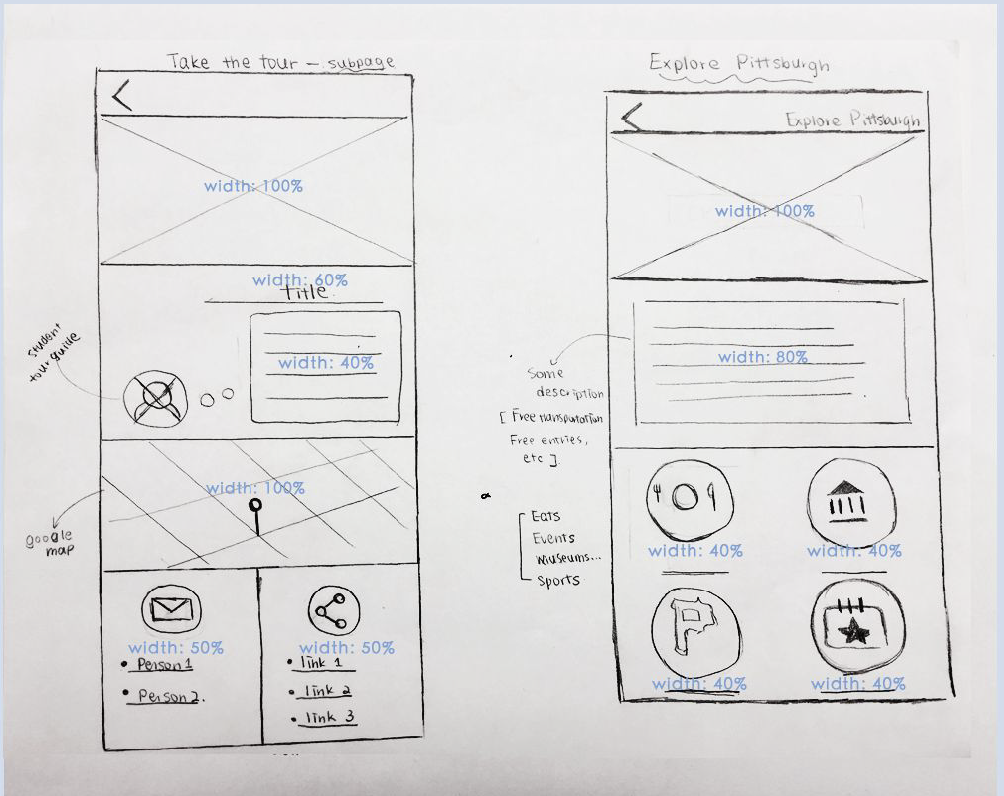 Take the tour – subpage
width: 100%
width: 60%
Title
student
tour guide
width: 40%
width: 100%
google
map
width: 50%
• Person 1
• Person 2.
width: 50%
• link 1
• link 2
• link 3
Explore Pittsburgh
Explore Pittsburgh
width: 100%
width: 80%
Some
description
[ Free transportation
Free entries,
etc ].
Eats
Events
Museums...
Sports
width: 40%
width: 40%
width: 40%
width: 40%